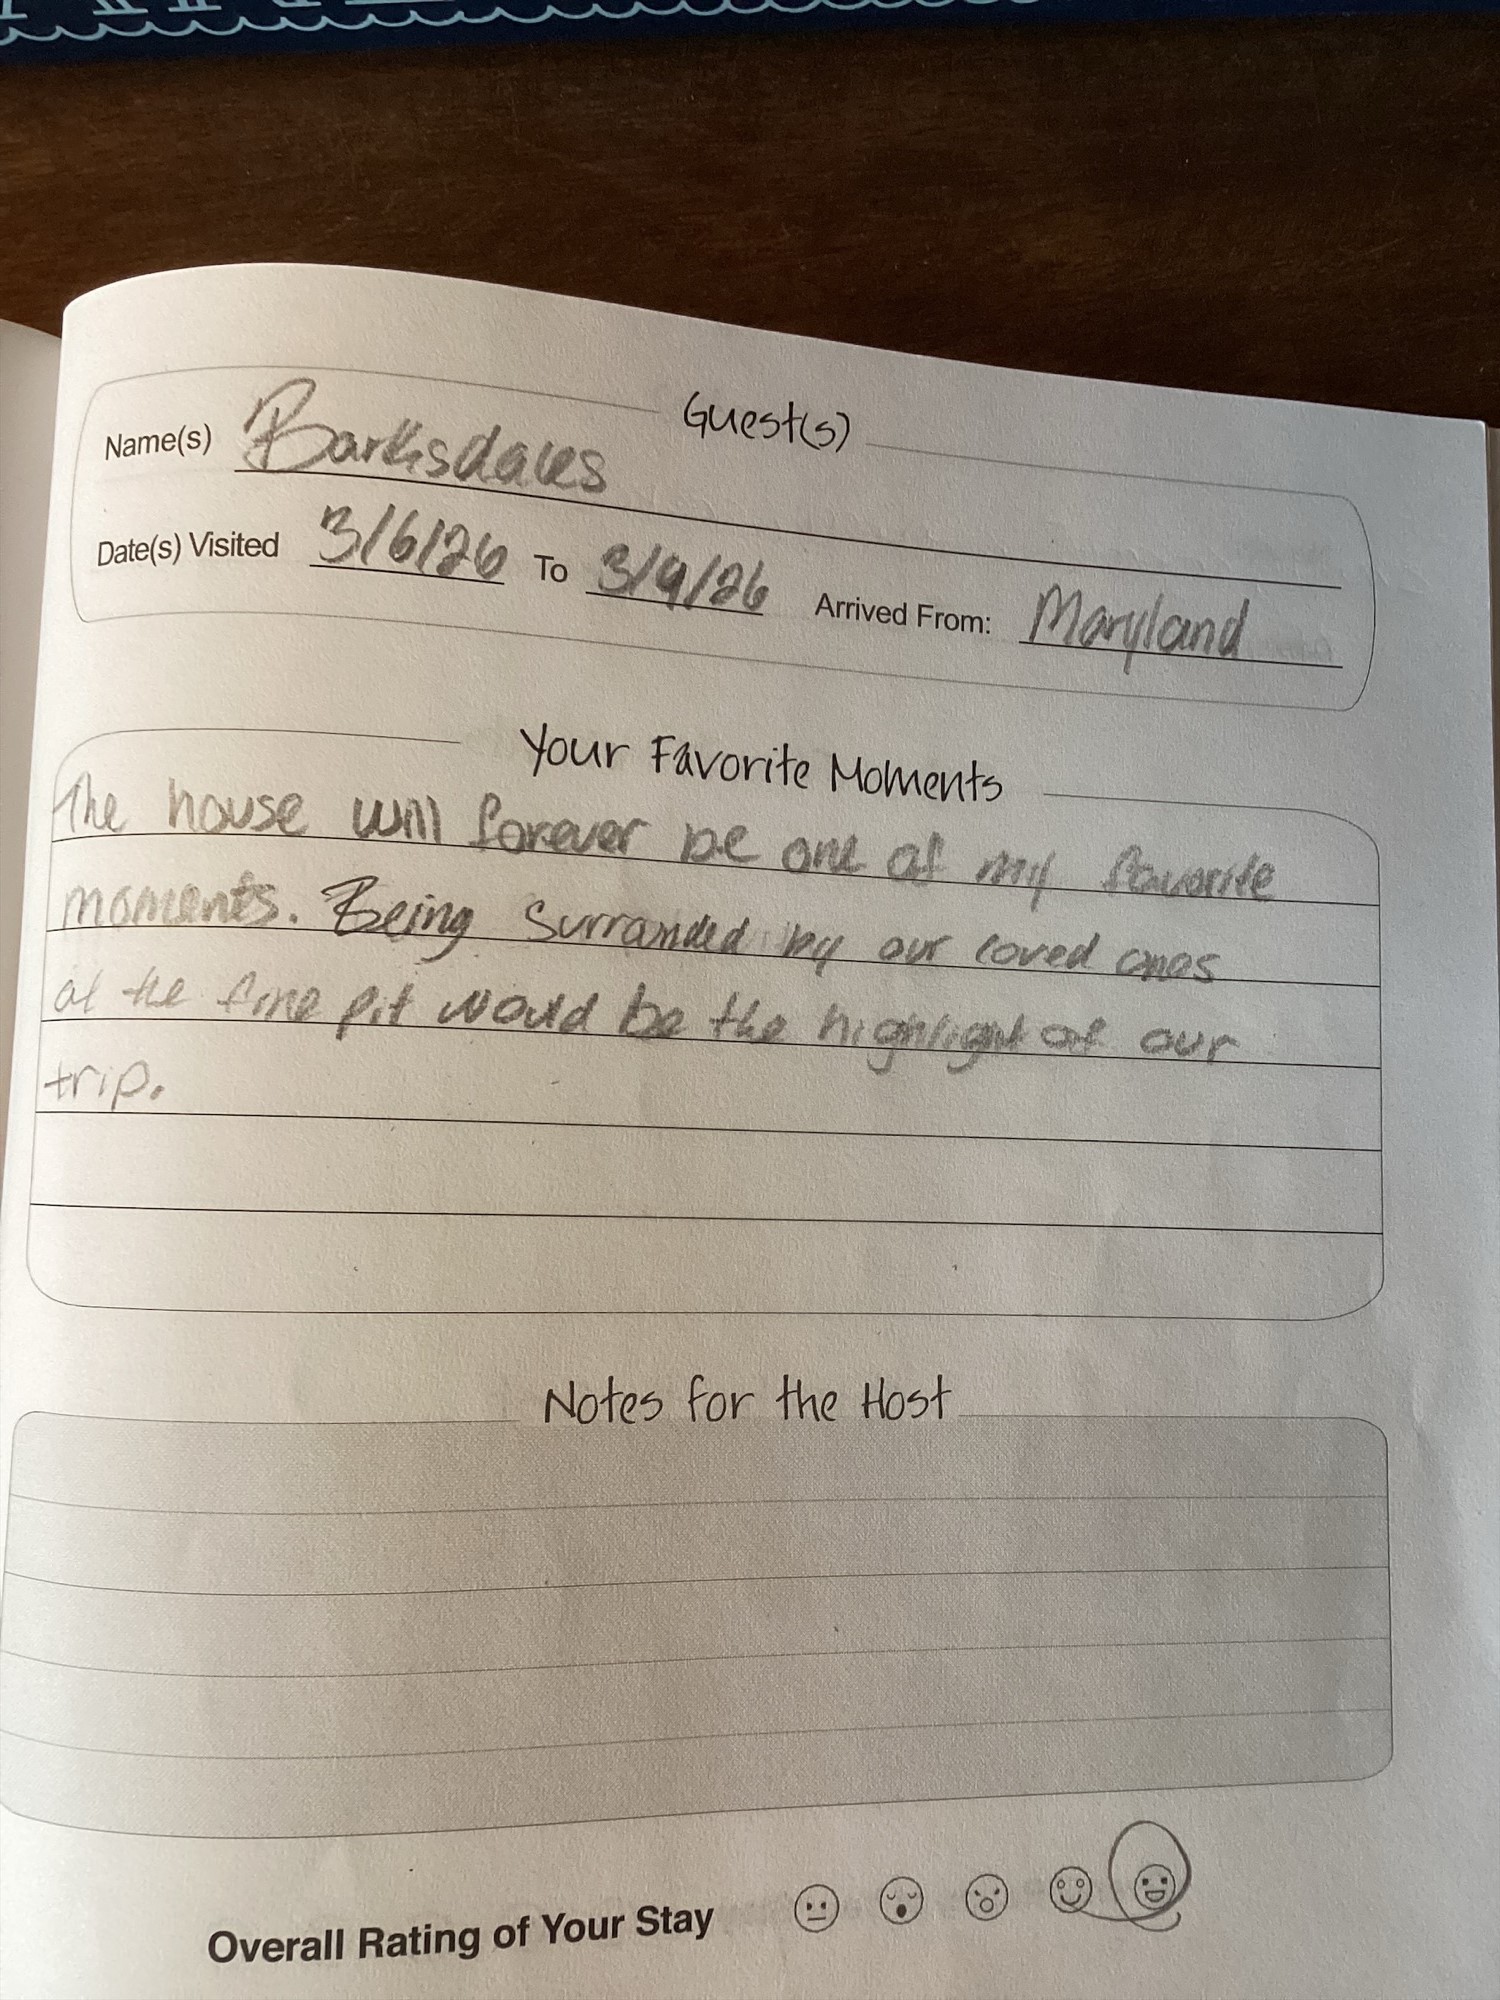 Guest(s)
Name(s) Barksdales
Date(s) Visited 3/6/26 To 3/9/26 Arrived From: Maryland
Your Favorite Moments
The house will forever be one of my favorite
moments. Being surrounded by our loved ones
at the fire pit would be the highlight of our
trip.
Notes for the Host
Overall Rating of Your Stay